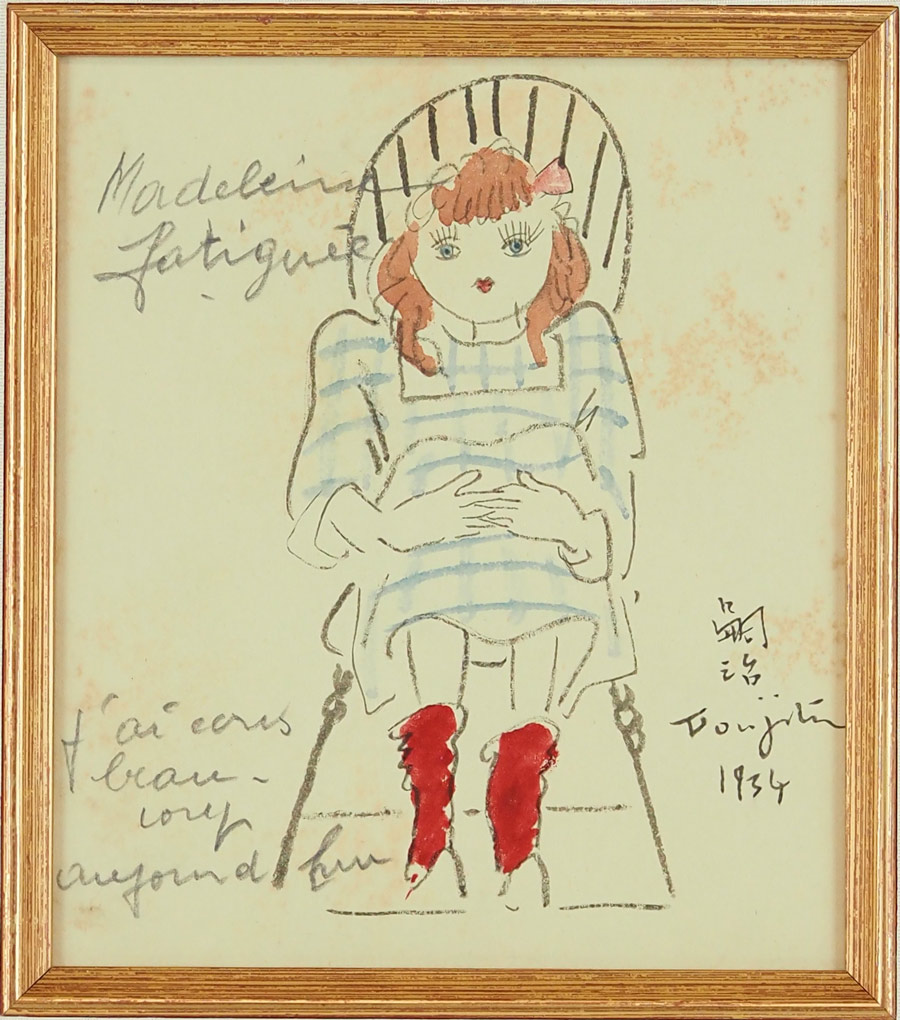 Madeleine
fatiguée
j'ai couru
beau-
coup
aujourd'hui
嗣
治
Foujita
1934